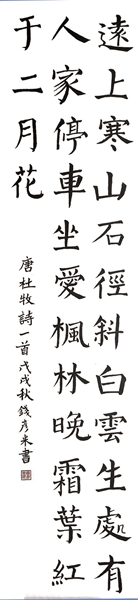 遠上寒山石徑斜白雲生處有
人家停車坐愛楓林晚霜葉紅
于二月花
唐杜牧詩一首戊戌秋錢彦来書